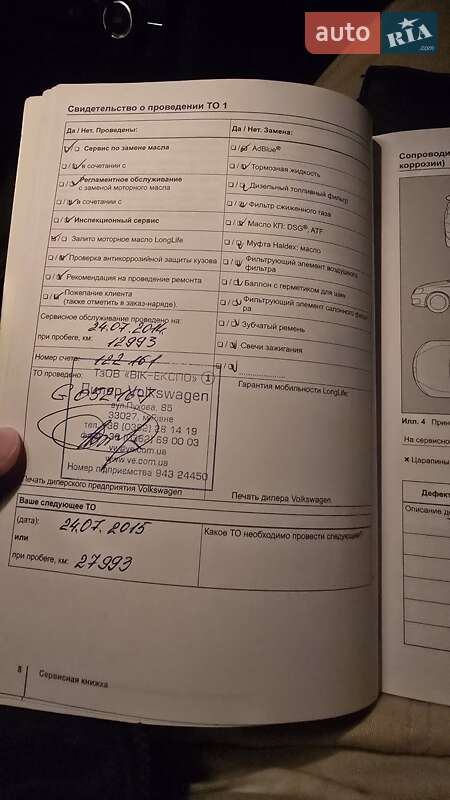 auto RIA .com
Свидетельство о проведении ТО 1
Да / Нет. Проведены:
Да / Нет. Замена:
Сервис по замене масла
AdBlue®
в сочетании с
Тормозная жидкость
Регламентное обслуживание
с заменой моторного масла
Дизельный топливный фильтр
в сочетании с
Фильтр сжиженного газа
Инспекционный сервис
Масло КП: DSG®, ATF
Залито моторное масло LongLife
Муфта Haldex: масло
Проверка антикоррозийной защиты кузова
Фильтрующий элемент воздушного
фильтра
Рекомендация на проведение ремонта
Баллон с герметиком для шин
Пожелание клиента
(также отметить в заказ-наряде).
Фильтрующий элемент салонного фильт-
ра
Сервисное обслуживание проведено на:
24.07.2014
Зубчатый ремень
при пробеге, км: 12993
Свечи зажигания
Номер счета: 122161
ТО проведено:
Гарантия мобильности LongLife:
ТзОВ «ВІК-ЕКСПО» 1
Дилер Volkswagen
вул.
85
33027, м.
тел.
28 14 19
69 00 03
ve@ve.com.ua
www.ve.com.ua
Номер підприємства 943 24450
Печать дилерского предприятия Volkswagen
Печать дилера Volkswagen
Ваше следующее ТО
(дата): 24.07.2015
Какое ТО необходимо провести следующим?
или
при пробеге, км: 27993
8 Сервисная книжка
Сопроводи
коррозии)
Илл. 4 Прин
На сервисно
Царапины
Дефект
Описание де